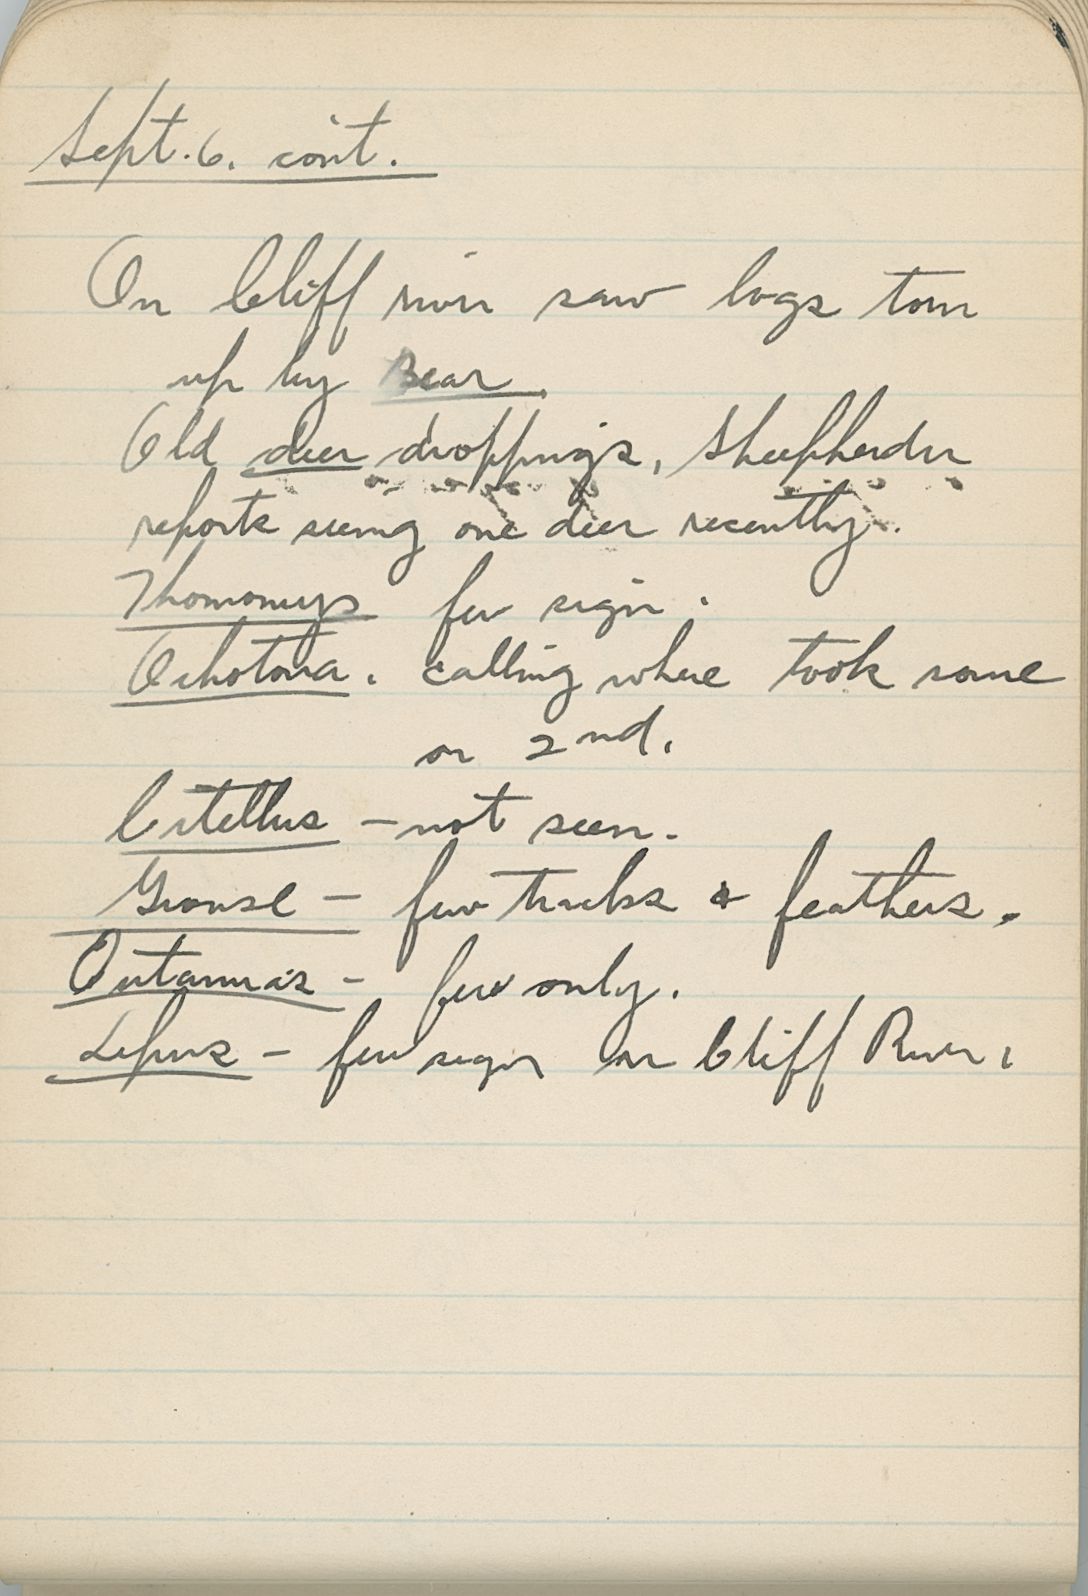 Sept. 6. cont.
On Cliff river saw logs torn
up by Bear.
Old deer droppings, Sheepherder
reports seeing one deer recently.
Thomomys few sign.
Ochotona. calling where took some
on 2nd.
Citellus - not seen.
Grouse - few tracks & feathers.
Eutamias - few only.
Lepus - few sign on Cliff River.